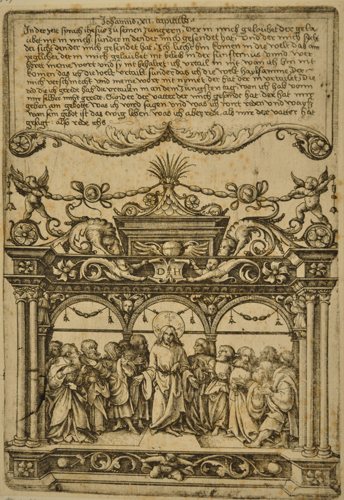 Johannis XII capitulo
In der zeit sprach ihesus zu seinen jungern Der in mich gelaubet der gelau
bet nit in mich sunder in den der mich gesendet hat Und der mich sicht
der sicht den der mich gesendet hat Ich liecht bin komen in die welt das ain
yeglicher der in mich gelaubet nit bleib in der finsternus und
hret meine wort und nit behaltet ich urtail in nit wan ich bin nit
komen das ich die welt urtail sunder das ich die welt mach Der
mich verschmacht und meine wort nit nympt der hat der in urtailet Die
red die ich gered hab die urtailen in an dem jungsten tag wan ich hab von
mir selber nicht geredt Sunder der vatter der mich gesendet hat der hat mir
geben ain gebote was ich sagen und was ich reden und
sein gebot ist das ewig leben was ich aber red als mir der vatter hat
gesagt also red ichs
D H